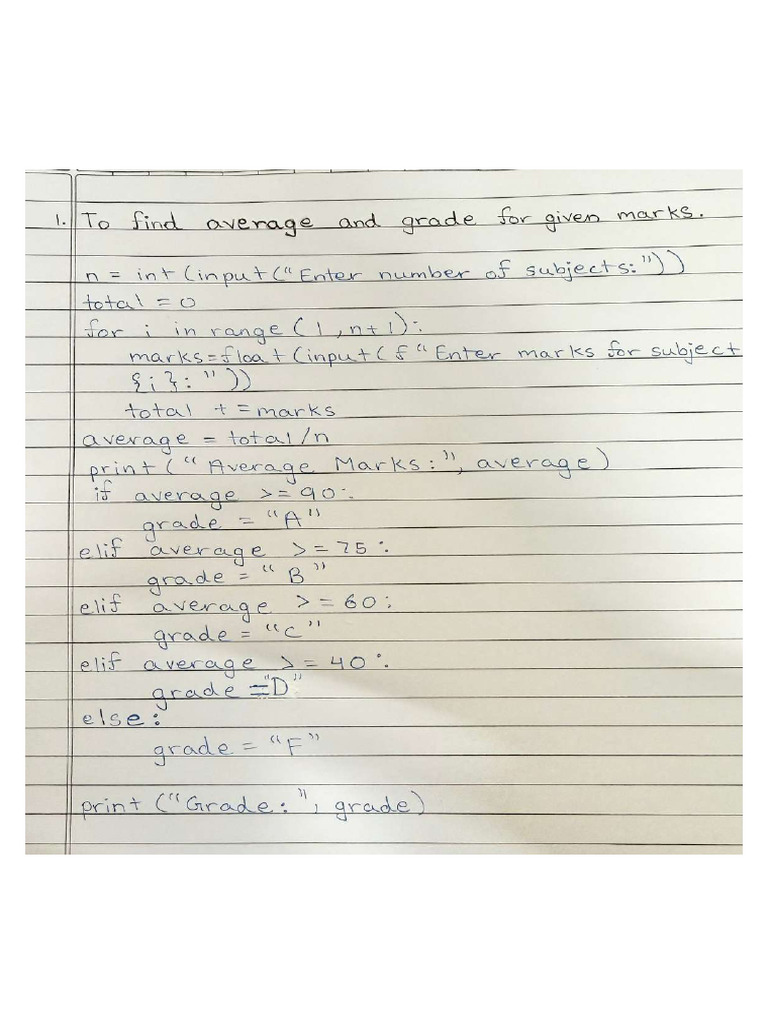 1. To find average and grade for given marks.
n = int (input ("Enter number of subjects:"))
total = 0
for i in range (1, n+1):
marks = float (input (f "Enter marks for subject
{i}: "))
total += marks
average = total/n
print ("Average Marks:", average)
if average >= 90:
grade = "A"
elif average >= 75:
grade = "B"
elif average >= 60:
grade = "C"
elif average >= 40:
grade = "D"
else:
grade = "F"
print ("Grade:", grade)